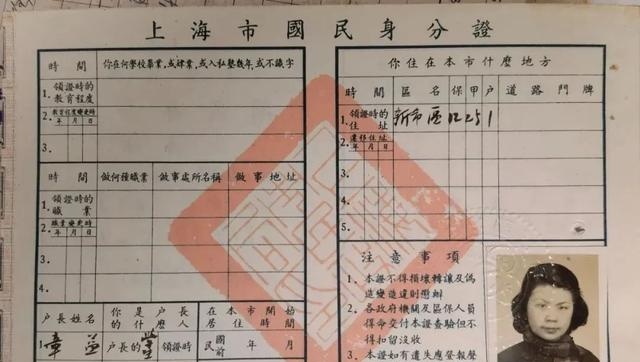 上海市國民身分證
時間 你在何學校畢業,或肄業,或入私塾幾年,或不識字
1.領證時的教育程度
2.教育程度變更時
年 月 日
3.
時間 做何種職業 做事處所名稱 做事地址
1.領證時的職業
2.職業變更時
年 月 日
3.
4.
戶長姓名 你是戶長的什麼人 在本市開始居住時間
1 章 戶長的 領證時 民國前 年 月
你住在本市什麼地方
時間 區名 保 甲 戶 道路門牌
1.領證時的住址 新市區 12 25 1
2.遷移住址
年 月 日
3.
4.
5.
注意事項
1、本證不得損壞轉讓及偽
造變造違則懲辦
2、各政府機關及區保人員
得命交付本證查驗但不
得扣留沒收
3、本證如有遺失應登報聲